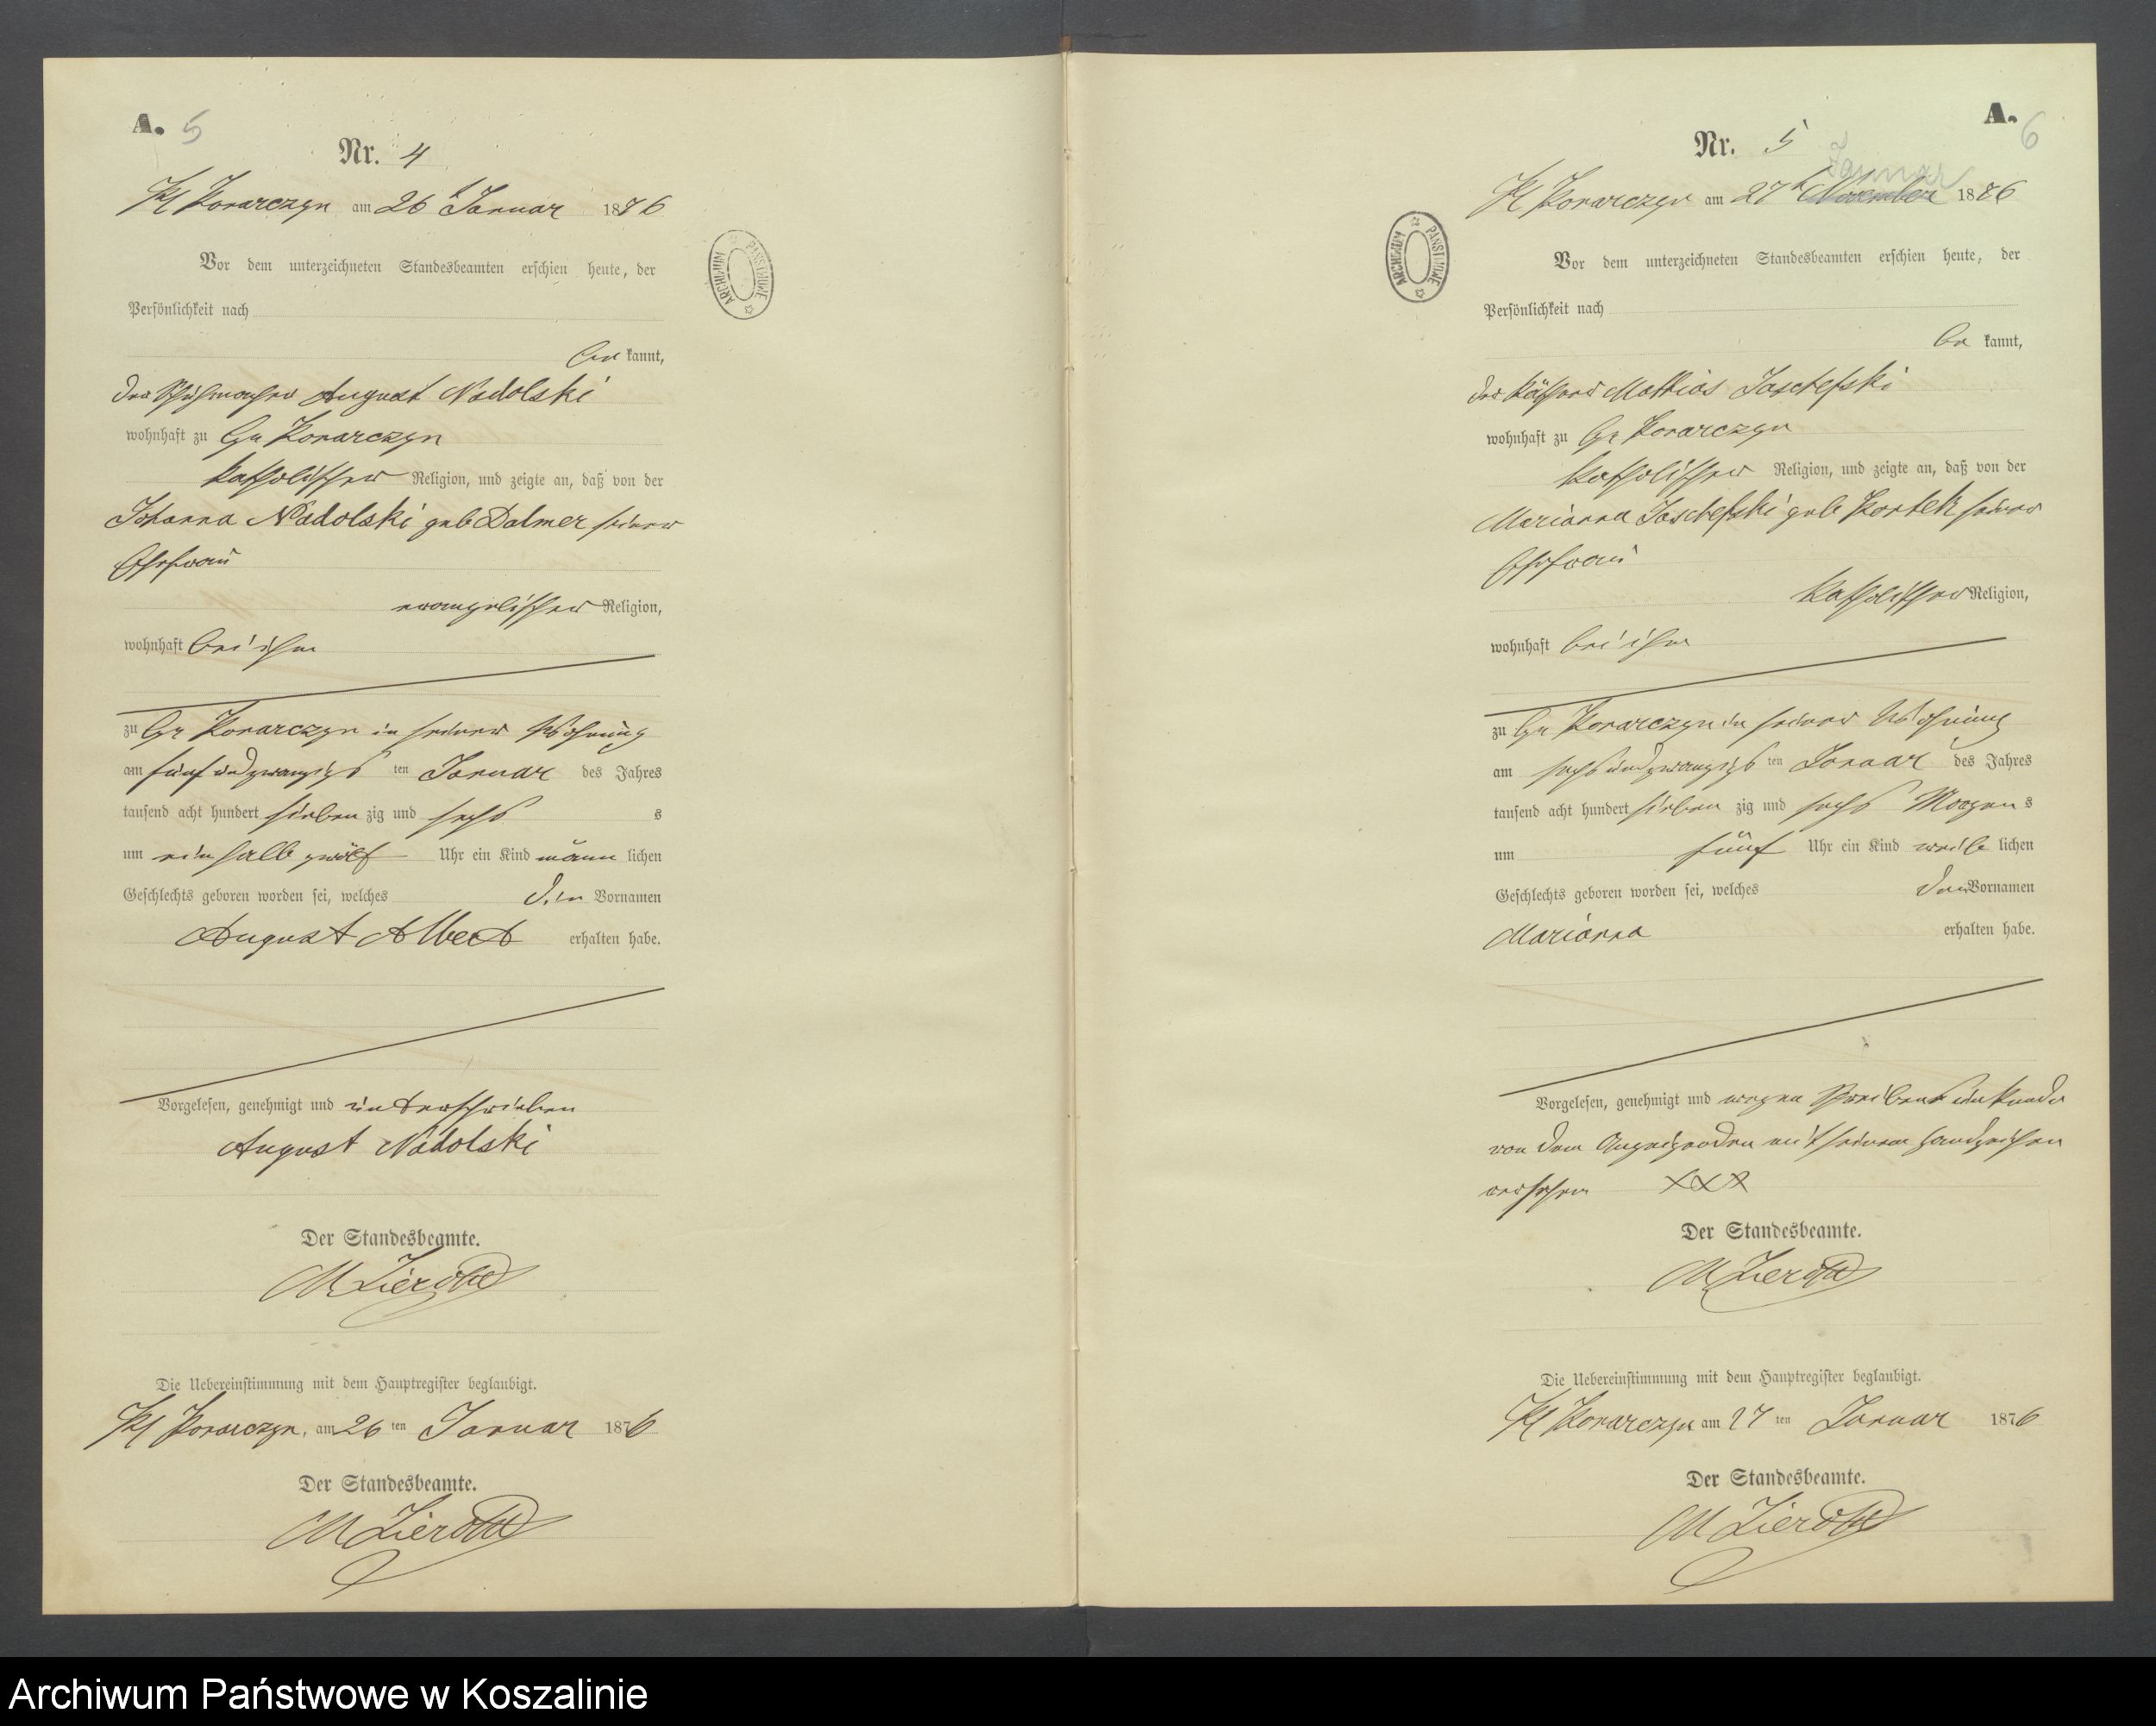 A. 5
Nr. 4
Kl Konarczyn am 26t Januar 1876
Vor dem unterzeichneten Standesbeamten erschien heute, der
Persönlichkeit nach
be kannt,
der Schuhmacher August Nadolski
wohnhaft zu Gr Konarczyn
katholischer Religion, und zeigte an, daß von der
Johanna Nadolski geb Dalmer seiner
Ehefrau
evangelischer Religion,
wohnhaft bei ihm
zu Gr Konarczyn in seiner Wohnung
am fünf und zwanzigs ten Januar des Jahres
tausend acht hundert sieben zig und sechs s
um ein halb zwölf Uhr ein Kind männ lichen
Geschlechts geboren worden sei, welches den Vornamen
August Albert erhalten habe.
Vorgelesen, genehmigt und unterschrieben
August Nadolski
Der Standesbeamte.
M Zieroth
Die Uebereinstimmung mit dem Hauptregister beglaubigt.
Kl Konarczyn, am 26 ten Januar 1876
Der Standesbeamte.
M Zieroth
ARCHIWUM PAŃSTWOWE
A. 6
Nr. 5
Januar
Kl Konarczyn am 27t November 1876
Vor dem unterzeichneten Standesbeamten erschien heute, der
Persönlichkeit nach
be kannt,
der Mathias Jaschefski
wohnhaft zu Gr Konarczyn
katholischer Religion, und zeigte an, daß von der
Marianna Jaschefski geb seiner
Ehefrau
katholischer Religion,
wohnhaft bei ihm
zu Gr Konarczyn in seiner Wohnung
am sechs und zwanzigs ten Januar des Jahres
tausend acht hundert sieben zig und sechs Morgen s
um fünf Uhr ein Kind weib lichen
Geschlechts geboren worden sei, welches den Vornamen
Marianna erhalten habe.
Vorgelesen, genehmigt und wegen Schreibens unkunde
von dem Anzeigenden mit seinem Handzeichen
versehen XXX
Der Standesbeamte.
M Zieroth
Die Uebereinstimmung mit dem Hauptregister beglaubigt.
Kl Konarczyn am 27 ten Januar 1876
Der Standesbeamte.
M Zieroth
ARCHIWUM PAŃSTWOWE
Archiwum Państwowe w Koszalinie